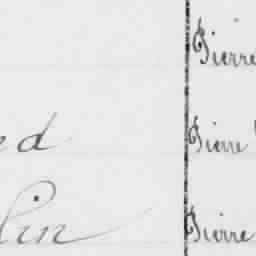 Pierre
ed Pierre
lin Pierre